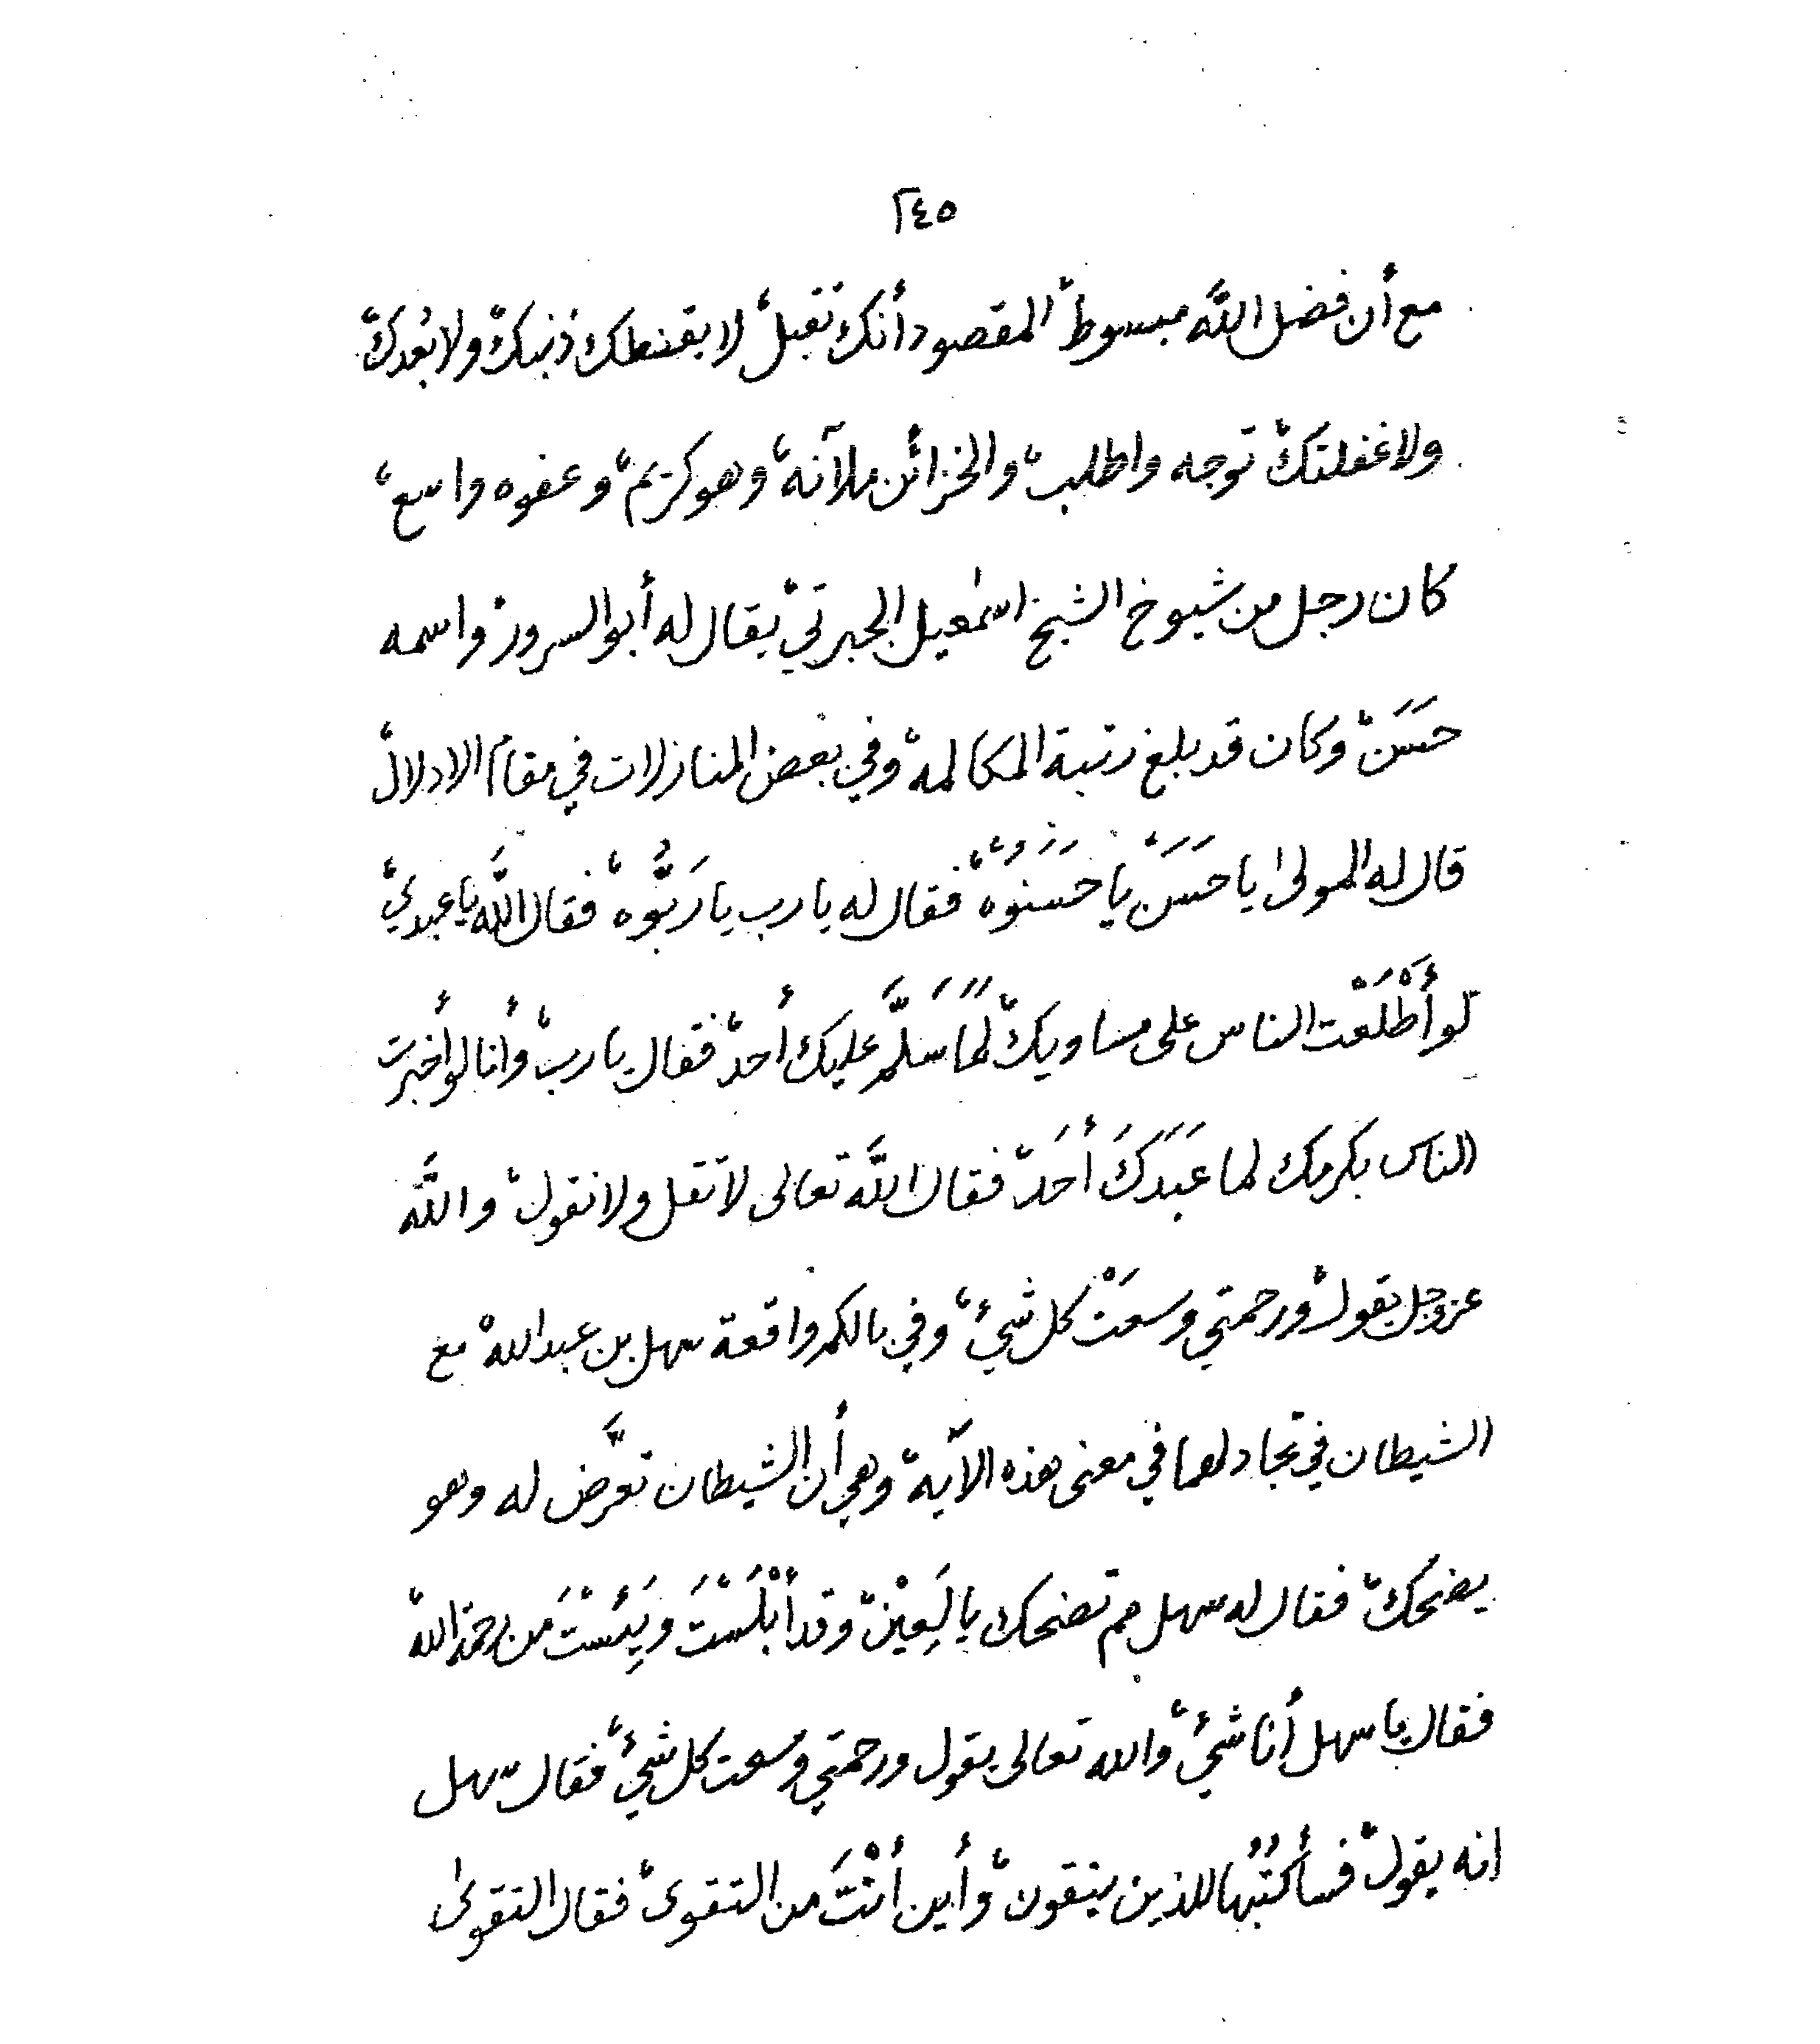 ٢٤٥
مع أن فضل اللَّه مبسوط، المقصود أنك تقبل، لا يقنطك ذنبك، ولا بُعدك،
ولا غفلتك، توجه واطلب، والخزائن ملآنة، وهو كريم، وعفوه واسع،
كان رجل من شيوخ الشيخ اسمٰعيل الجبرتي، يقال له أبو السرور، واسمه
حَسَن، وكان قد بلغ رتبة المكالمه، وفي بعض المنازلات في مقام الادلال،
قال له المولىٰ يا حَسَنْ يا حَسَنُوهْ، فقال له يا رب يا رَبُّوهْ، فقال اللَّه يا عبدي،
لو أَطْلَعْت الناس على مساويك، لمَاَ سَلَّمَ عليك أحد، فقال يا رب، وأنا لو أخبرت
الناس بكرمك لما عَبَدَكَ أحَد، فقال اللَّه تعالى لا تقل ولا نقول، واللَّه
عز وجل يقول، ورحمتي وسعَتْ كل شيء، وفي بالكم واقعة سهل بن عبدالله، مع
الشيطان في تجادلهما في معنى هذه الآية، وهي أن الشيطان تعرَّض له وهو
يضحك، فقال له سهل مم تضحك يا لَعِيْن، وقد أَبْلَسْتَ ويَئِسْتَ من رحمة الله،
فقال يا سهل أنا شيء، والله تعالى يقول ورحمتي وسعت كل شيء، فقال سهل
انه يقول، فسأكتُبُها للذين يتقون، وأين أنْتَ من التقوى، فقال التقوىٰ